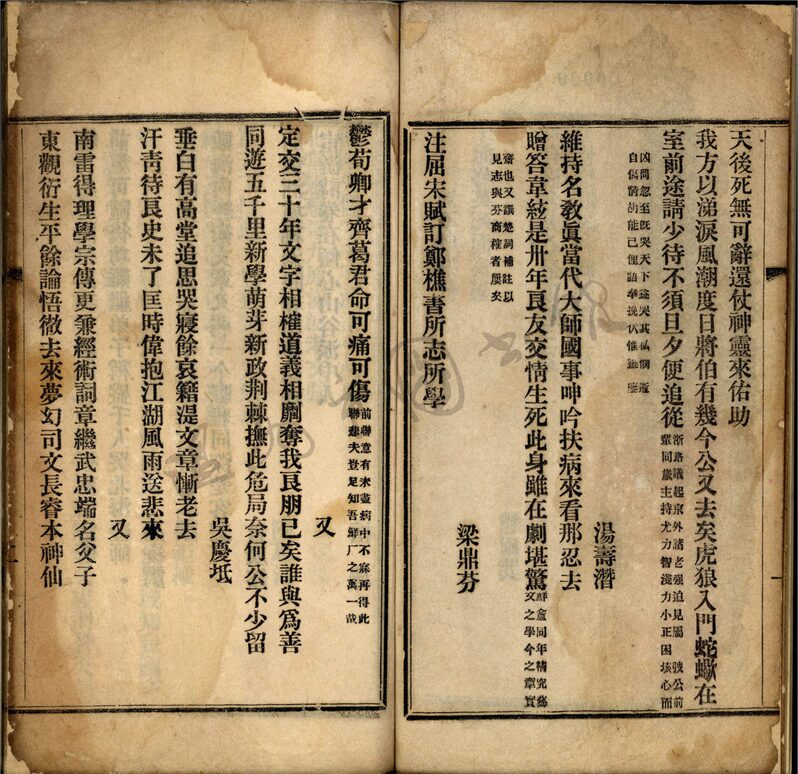 天後死無可辭還仗神靈來佑助
我方以涕淚風潮度日將伯有幾今公又去矣虎狼入門蛇蠍在
室前途請少待不須旦夕便追從
浙路議起京外諸老强迫見屬 公前
輩同歲主持尤力智淺力小正困垓心而
凶問忽至旣哭天下益哭其私惘
自傷
湯壽潛
維持名教眞當代大師國事呻吟扶病來看那忍去
贈答韋絃是卅年良友交情生死此身雖在劇堪驚
鮮盦同年精究
文之學今之章實
齋也又譔楚詞補註以
見志與芬商榷者屢矣
梁鼎芬
注屈宋賦訂鄭樵書所志所學
鬱荀卿才齊葛君命可痛可傷
前聯意有未盡病中不寐再得此
聯悲夫豈足知吾鮮厂之萬一哉
又
定交三十年文字相權道義相劘奪我良朋已矣誰與爲善
同遊五千里新學萌芽新政荆棘撫此危局奈何公不少留
吳慶坻
垂白有高堂追思哭寢餘哀籍湜文章慚老去
汗靑待良史未了匡時偉抱江湖風雨送悲來
又
南雷得理學宗傳更兼經術詞章繼武忠端名父子
東觀衍生平餘論悟徹去來夢幻司文長睿本神仙